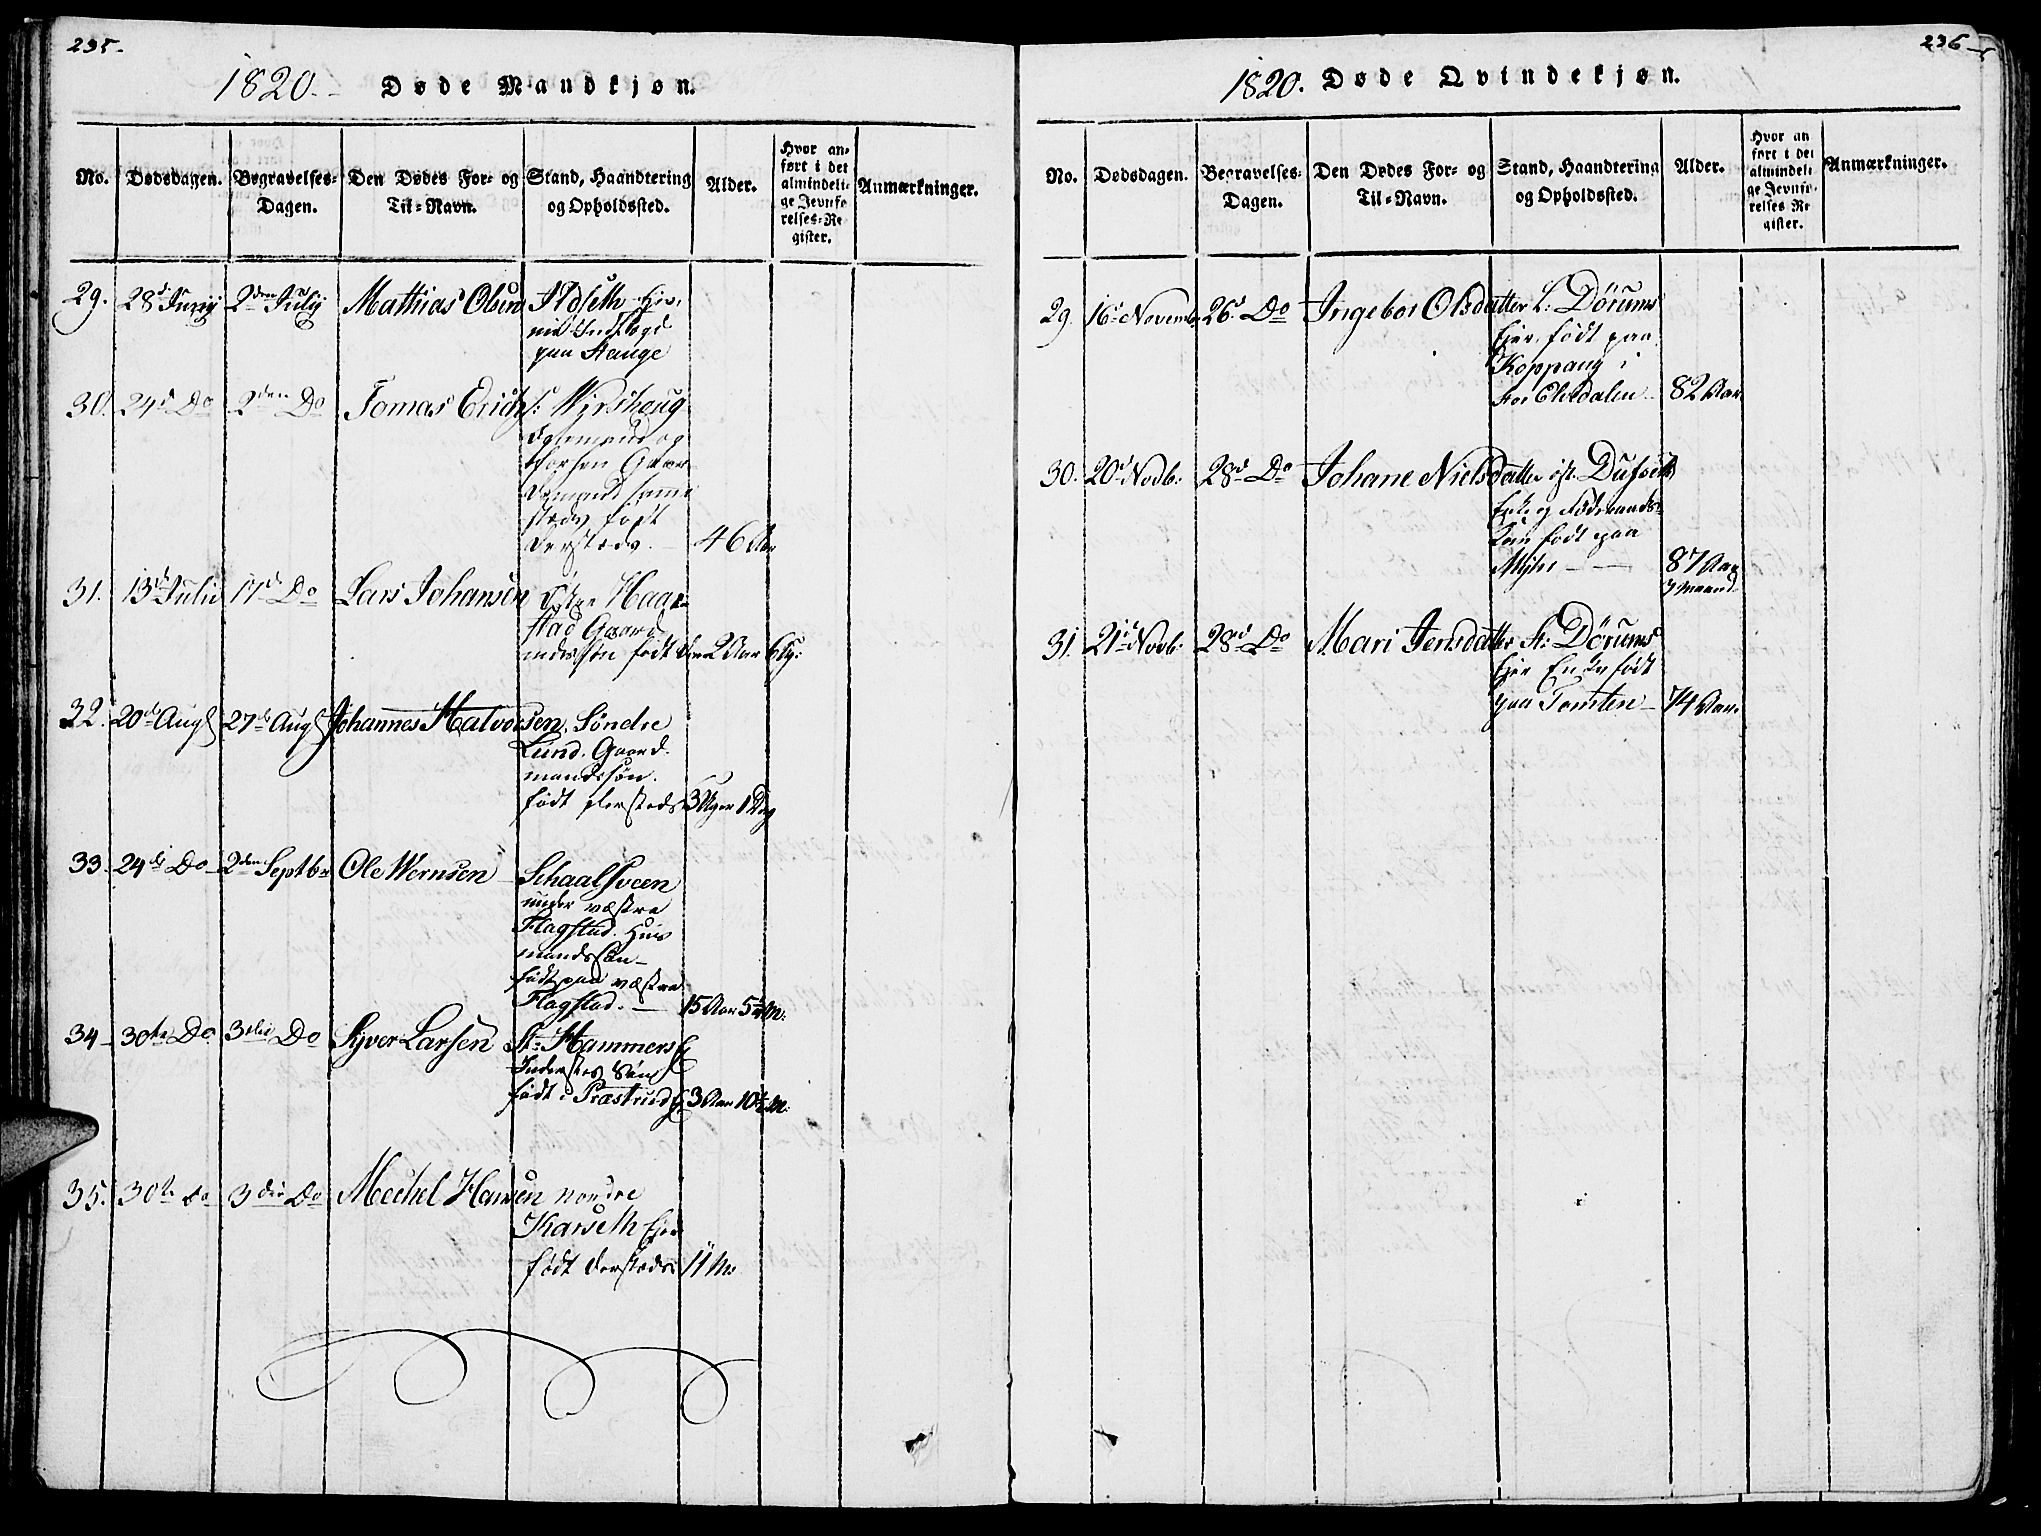 235.
1820. Døde Mandkjøn.
No. Dødsdagen. Begravelses-Dagen. Den Dødes For- og Til-Navn. Stand, Haandtering og Opholdssted. Alder. Hvor anført i det almindelige Jevnførelses-Register. Anmærkninger.
29. 28d Junij 2den Julij Mathias Olsen Ildseth Eie,
paa Hauge
30. 24d Do 2den Do Tomas Erichs:
Gaar
født
dersteds. 46 Aar
31. 13d Julii 17d Do Lars Johansen Østre Haar-
stad Gaard
mandssøn født der 2 Aar 6 Ug:
32. 20d Augs 27d Augs Johannes Halvorsen Søndre
Lund. Gaard-
mandssøn.
født dersteds 3 Uger 1 Dag
33. 24d Do 2den Septbr Ole Wernsen Schaalsveen
under væstre
Flagstad. Huus
mandssøn
født paa væstre
Flagstad. 15 Aar 5 1/2 M:
34 30te Do 3die Do Syver Larsen St. Hammers E
Inderstes Søn
født i Præstrud E 3 Aar 10 1/2 M:
35. 30te Do 3die Do Mechel Hansen nordre
Karseth Eier
født dersteds 11 M:
236
1820. Døde Qvindekjøn.
No. Dødsdagen. Begravelses-Dagen. Den Dødes For- og Til-Navn. Stand, Haandtering og Opholdssted. Alder. Hvor anført i det almindelige Jevnførelses Register. Anmærkninger.
29. 16d Novemb. 26d Do Ingebor Olsdatter L: Dørums
Eier, født paa
Koppang i
Stor Elvedalen 82 Aar
30. 20d Novb: 28d Do Johane Nielsdatter øst. Dufseth
Enke og Føderaads-
Kone født paa
Myhr 87 Aar
7 Maand
31. 21d Novb: 28d Do Mari Jensdatter St: Dørums
Eier Enke født
paa Tomten 74 Aar